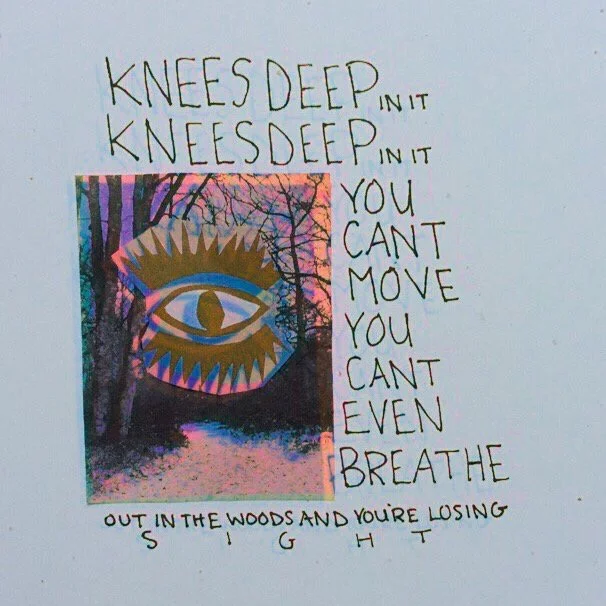 KNEES DEEP IN IT
KNEES DEEP IN IT
YOU
CANT
MOVE
YOU
CANT
EVEN
BREATHE
OUT IN THE WOODS AND YOU'RE LOSING
S I G H T